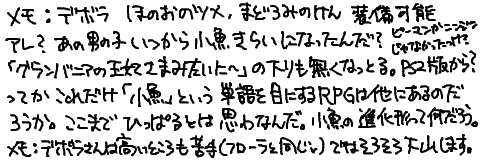 メモ：デボラ ほのおのツメ、まどろみのけん 装備可能
アレ？あの男の子いつから小魚きらいになったんだ？ピーマンかニンジンじゃなかったっけ？
「グランバニアの王さまみたいに〜」の下りも無くなっとる。PS2版から？
ってかこれだけ「小魚」という単語を目にするRPGは他にあるのだ
ろうか。ここまでひっぱるとは思わなんだ。小魚の進化形って何だろう。
メモ：デボラさんは高いところも苦手(フローラと同じ)ではそろそろ下山します。